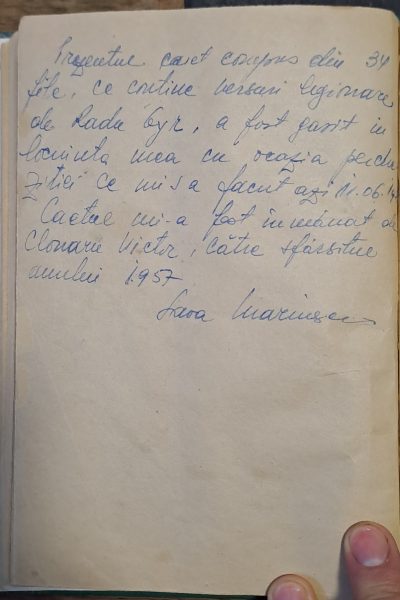 Prezentul caet compus din 34
file, ce contine versuri legionare
de Radu Gyr, a fost gasit in
locuinta mea cu ocazia perche-
zitiei ce mi s-a facut azi 11.06.19
Caetul mi-a fost inmânat de
Clonaru Victor, către sfârsitul
anului 1957
Sava Marinescu